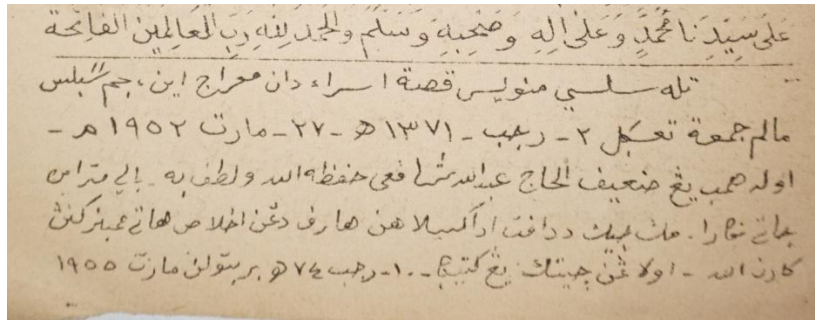 عَلَى سَيِّدِنَا مُحَمَّدٍ وَعَلَى الِهِ وَصَحْبِهِ وَسَلَّمَ وَالْحَمْدُ لِلّٰهِ رَبِّ الْعَالَمِيْنَ الْفَاتِحَة
تله سلسي منوليس قصة اسراء دان معراج اين، جم سبلس
مالم جمعة تڠݢل ٢ـ رجب ـ ١٣٧١ ھ ـ ٢٧ـ مارت ١٩٥٢ م ـ
اوله همب يڠ ضعيف الحاج عبدالله شافعى حفظه الله ولطف به ـ بالي
جاتي نݢارا. ددافت هارف دڠن اخلاص هاتي
كارن الله ـ اولاڠن چيتق يڠ كتيݢ ـ ١٠ـ رجب ٧٤ ھ بربتولن مارت ١٩٥٥